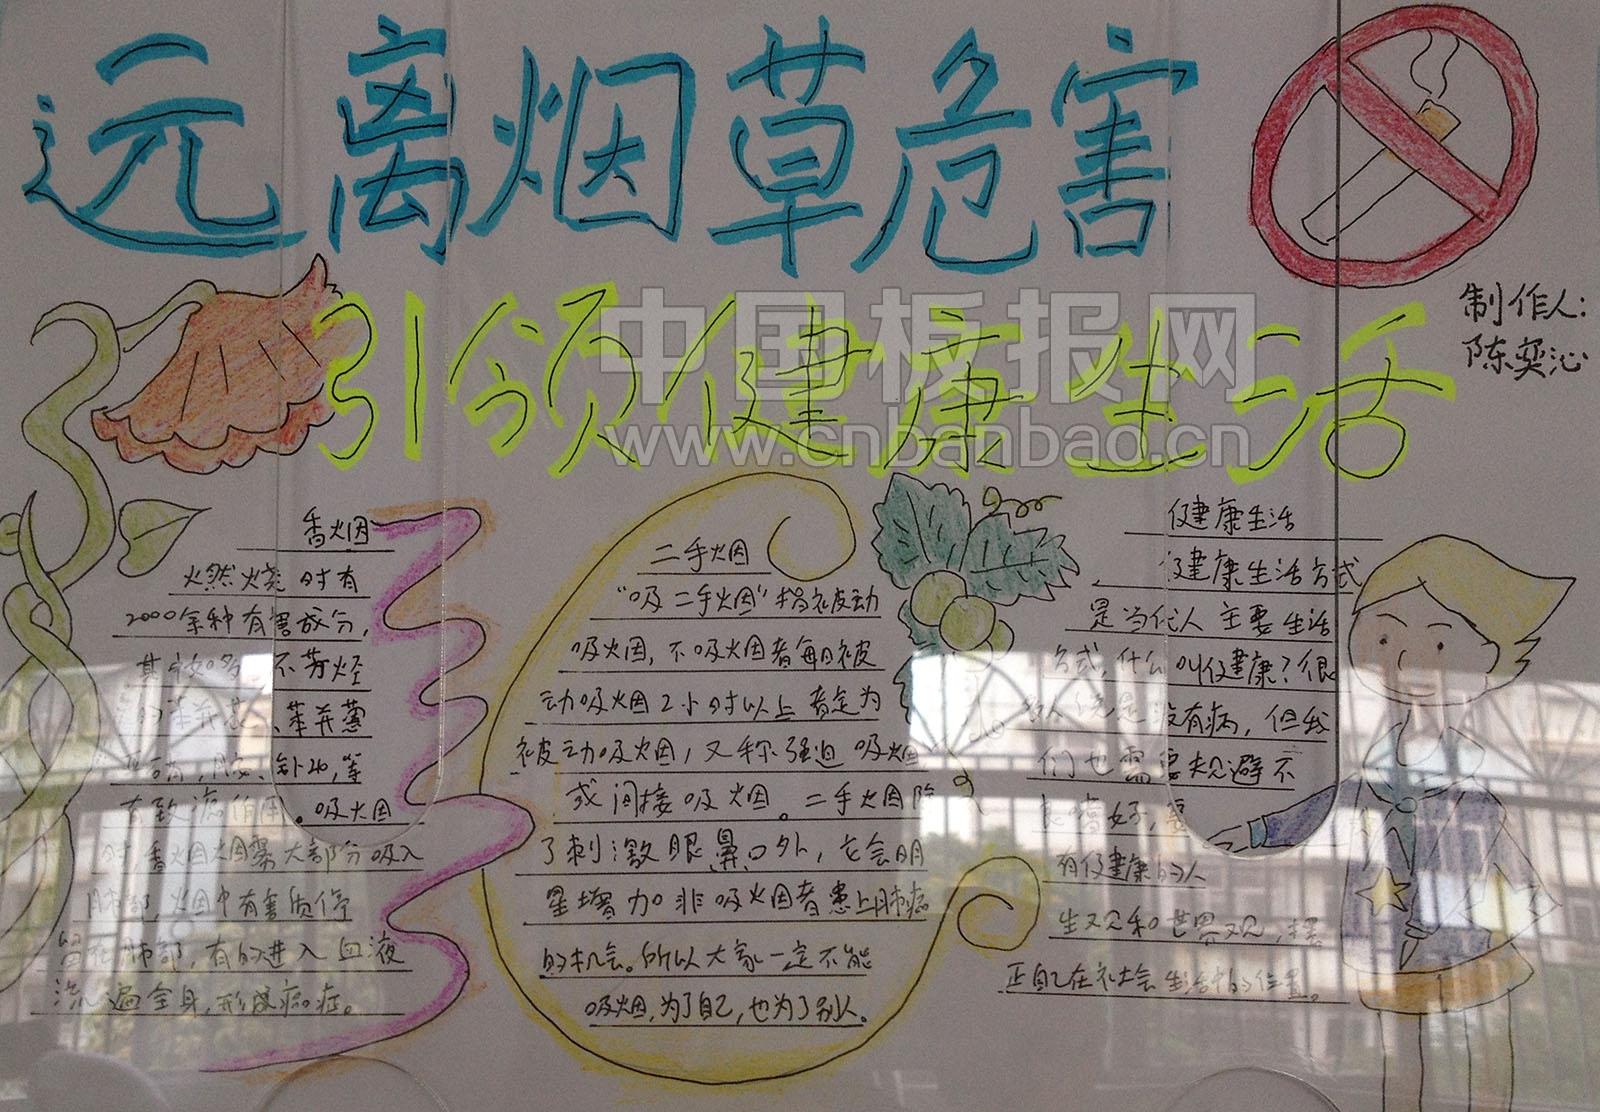 远离烟草危害
引领健康生活
制作人:
陈奕沁
中国板报网
www.cnbanbao.cn
香烟
燃烧时有
2000余种有害成分,
不芳烃
苯并
等
有致癌作用。吸烟
时香烟烟雾大部分吸入
肺部,烟中有害质停
留在肺部,有的进入血液
流遍全身,形成癌症。
二手烟
“吸二手烟”指被动
吸烟,不吸烟者每日被
动吸烟2小时以上者定为
被动吸烟,又称强迫吸烟
或间接吸烟。二手烟除
了刺激眼鼻口外,它会明
星增加非吸烟者患上肺癌
的机会。所以大家一定不能
吸烟,为了自己,也为了别人。
健康生活
健康生活方式
是当代人主要生活
方式,什么叫健康?很
多人说是没有病,但我
们也需要规避不
良嗜好,要
有健康的人
生观和世界观,摆
正自己在社会生活中的位置。